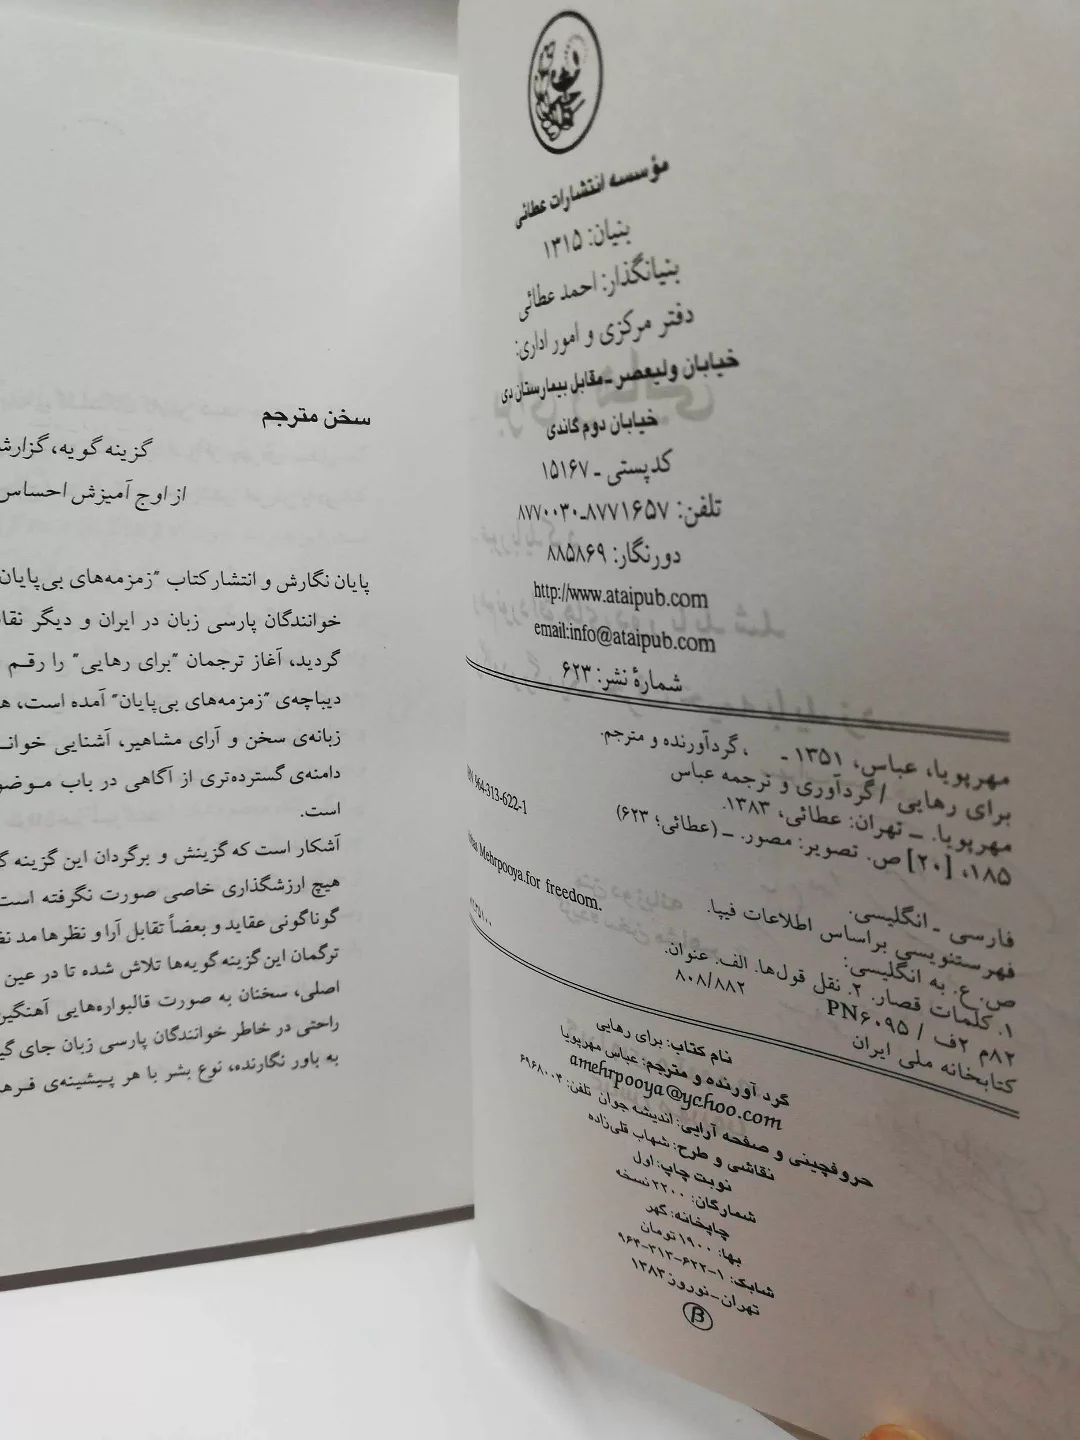 مؤسسه انتشارات عطائی
بنیان: ۱۳۱۵
بنیانگذار: احمد عطائی
دفتر مرکزی و امور اداری:
خیابان ولیعصر ـ مقابل بیمارستان دی
خیابان دوم گاندی
کدپستی ـ ۱۵۱۶۷
تلفن: ۸۷۷۱۶۵۷ـ۸۷۷۰۰۳۰
دورنگار: ۸۸۵۸۶۹
http://www.ataipub.com
email:info@ataipub.com
شمارهٔ نشر: ۶۲۳
مهرپویا، عباس، ۱۳۵۱ ـ ، گردآورنده و مترجم.
برای رهایی / گردآوری و ترجمه عباس
مهرپویا. ـ تهران: عطائی، ۱۳۸۳.
۱۸۵، [۲۰] ص. تصویر: مصور. ـ (عطائی؛ ۶۲۳)
964-313-622-1
فارسی ـ انگلیسی.
فهرستنویسی براساس اطلاعات فیپا.
ص. ع. به انگلیسی:
Mehrpooya.for freedom.
۱. کلمات قصار. ۲. نقل قول‌ها. الف. عنوان.
۸۲م ۲ف / PN۶۰۹۵ ۸۰۸/۸۸۲
کتابخانه ملی ایران
نام کتاب: برای رهایی
گرد آورنده و مترجم: عباس مهرپویا
amehrpooya@yahoo.com
حروفچینی و صفحه آرایی: اندیشه جوان تلفن: ۶۹۶۸۰۰۴
نقاشی و طرح: شهاب قلی‌زاده
نوبت چاپ: اول
شمارگان: ۲۲۰۰ نسخه
چاپخانه: گهر
بها: ۱۹۰۰ تومان
شابک: ۱-۶۲۲-۳۱۳-۹۶۴
تهران ـ نوروز ۱۳۸۳
β
سخن مترجم
گزینه گویه، گزارش
از اوج آمیزش احساس
پایان نگارش و انتشار کتاب "زمزمه‌های بی‌پایان
خوانندگان پارسی زبان در ایران و دیگر نقا
گردید، آغاز ترجمان "برای رهایی" را رقم
دیباچه‌ی "زمزمه‌های بی‌پایان" آمده است،
زبانه‌ی سخن و آرای مشاهیر، آشنایی خوانـ
دامنه‌ی گسترده‌تری از آگاهی در باب موضو
است.
آشکار است که گزینش و برگردان این گزینه گ
هیچ ارزشگذاری خاصی صورت نگرفته است
گوناگونی عقاید و بعضاً تقابل آرا و نظرها مد نظ
ترگمان این گزینه گویه‌ها تلاش شده تا در عین
اصلی، سخنان به صورت قالبواره‌هایی آهنگین
راحتی در خاطر خوانندگان پارسی زبان جای گیر
به باور نگارنده، نوع بشر با هر پیشینه‌ی فرهـ